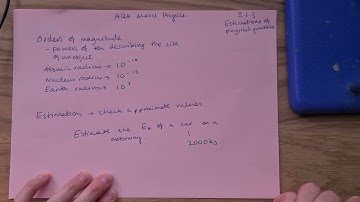 AQA A Level Physics
3.1.3
Estimations of
physical quantities
Orders of magnitude
- Powers of ten describing the size
of an object
Atomic radius → 10⁻¹⁰
Nucleus radius → 10⁻¹⁵
Earth radius → 10⁷
Estimation → check approximate values
Estimate the Eₖ of a car on a
motorway
2000kg